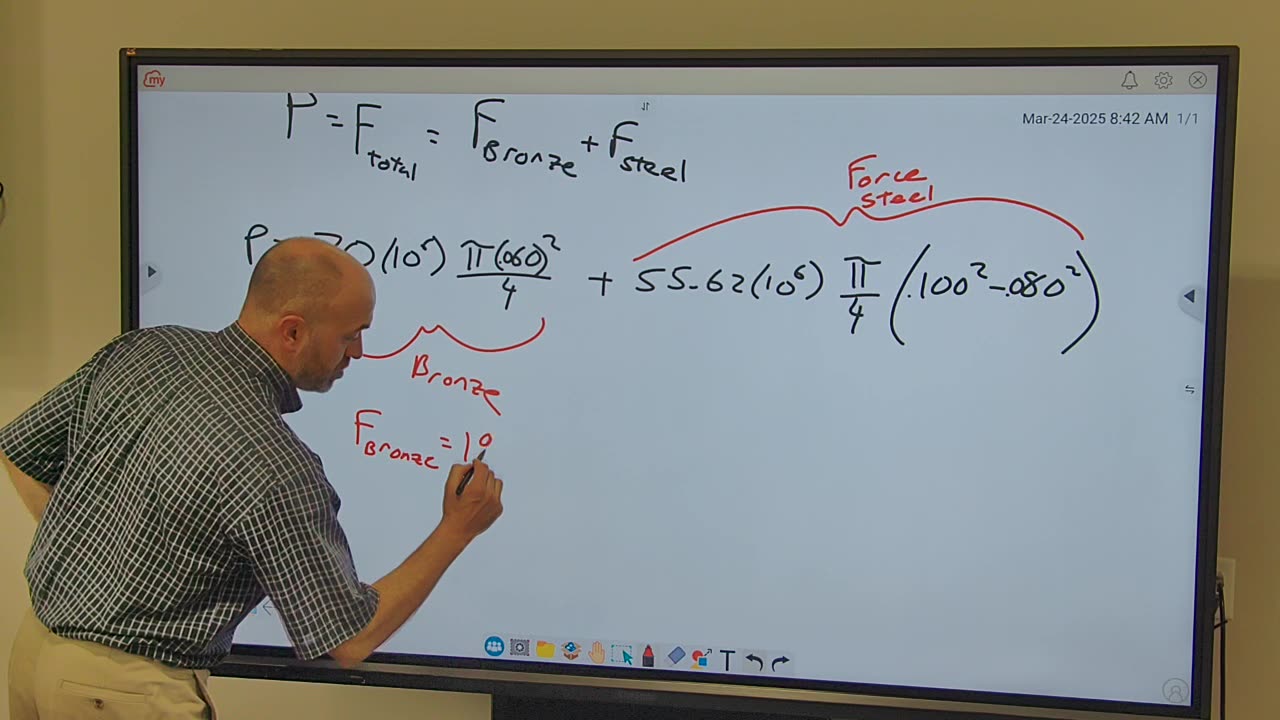 my
Mar-24-2025 8:42 AM 1/1
P = F total = F Bronze + F steel
Force
steel
70(10⁶) π(.060)²/4 + 55.62(10⁶) π/4 (.100² - .080²)
Bronze
F Bronze = 1
T